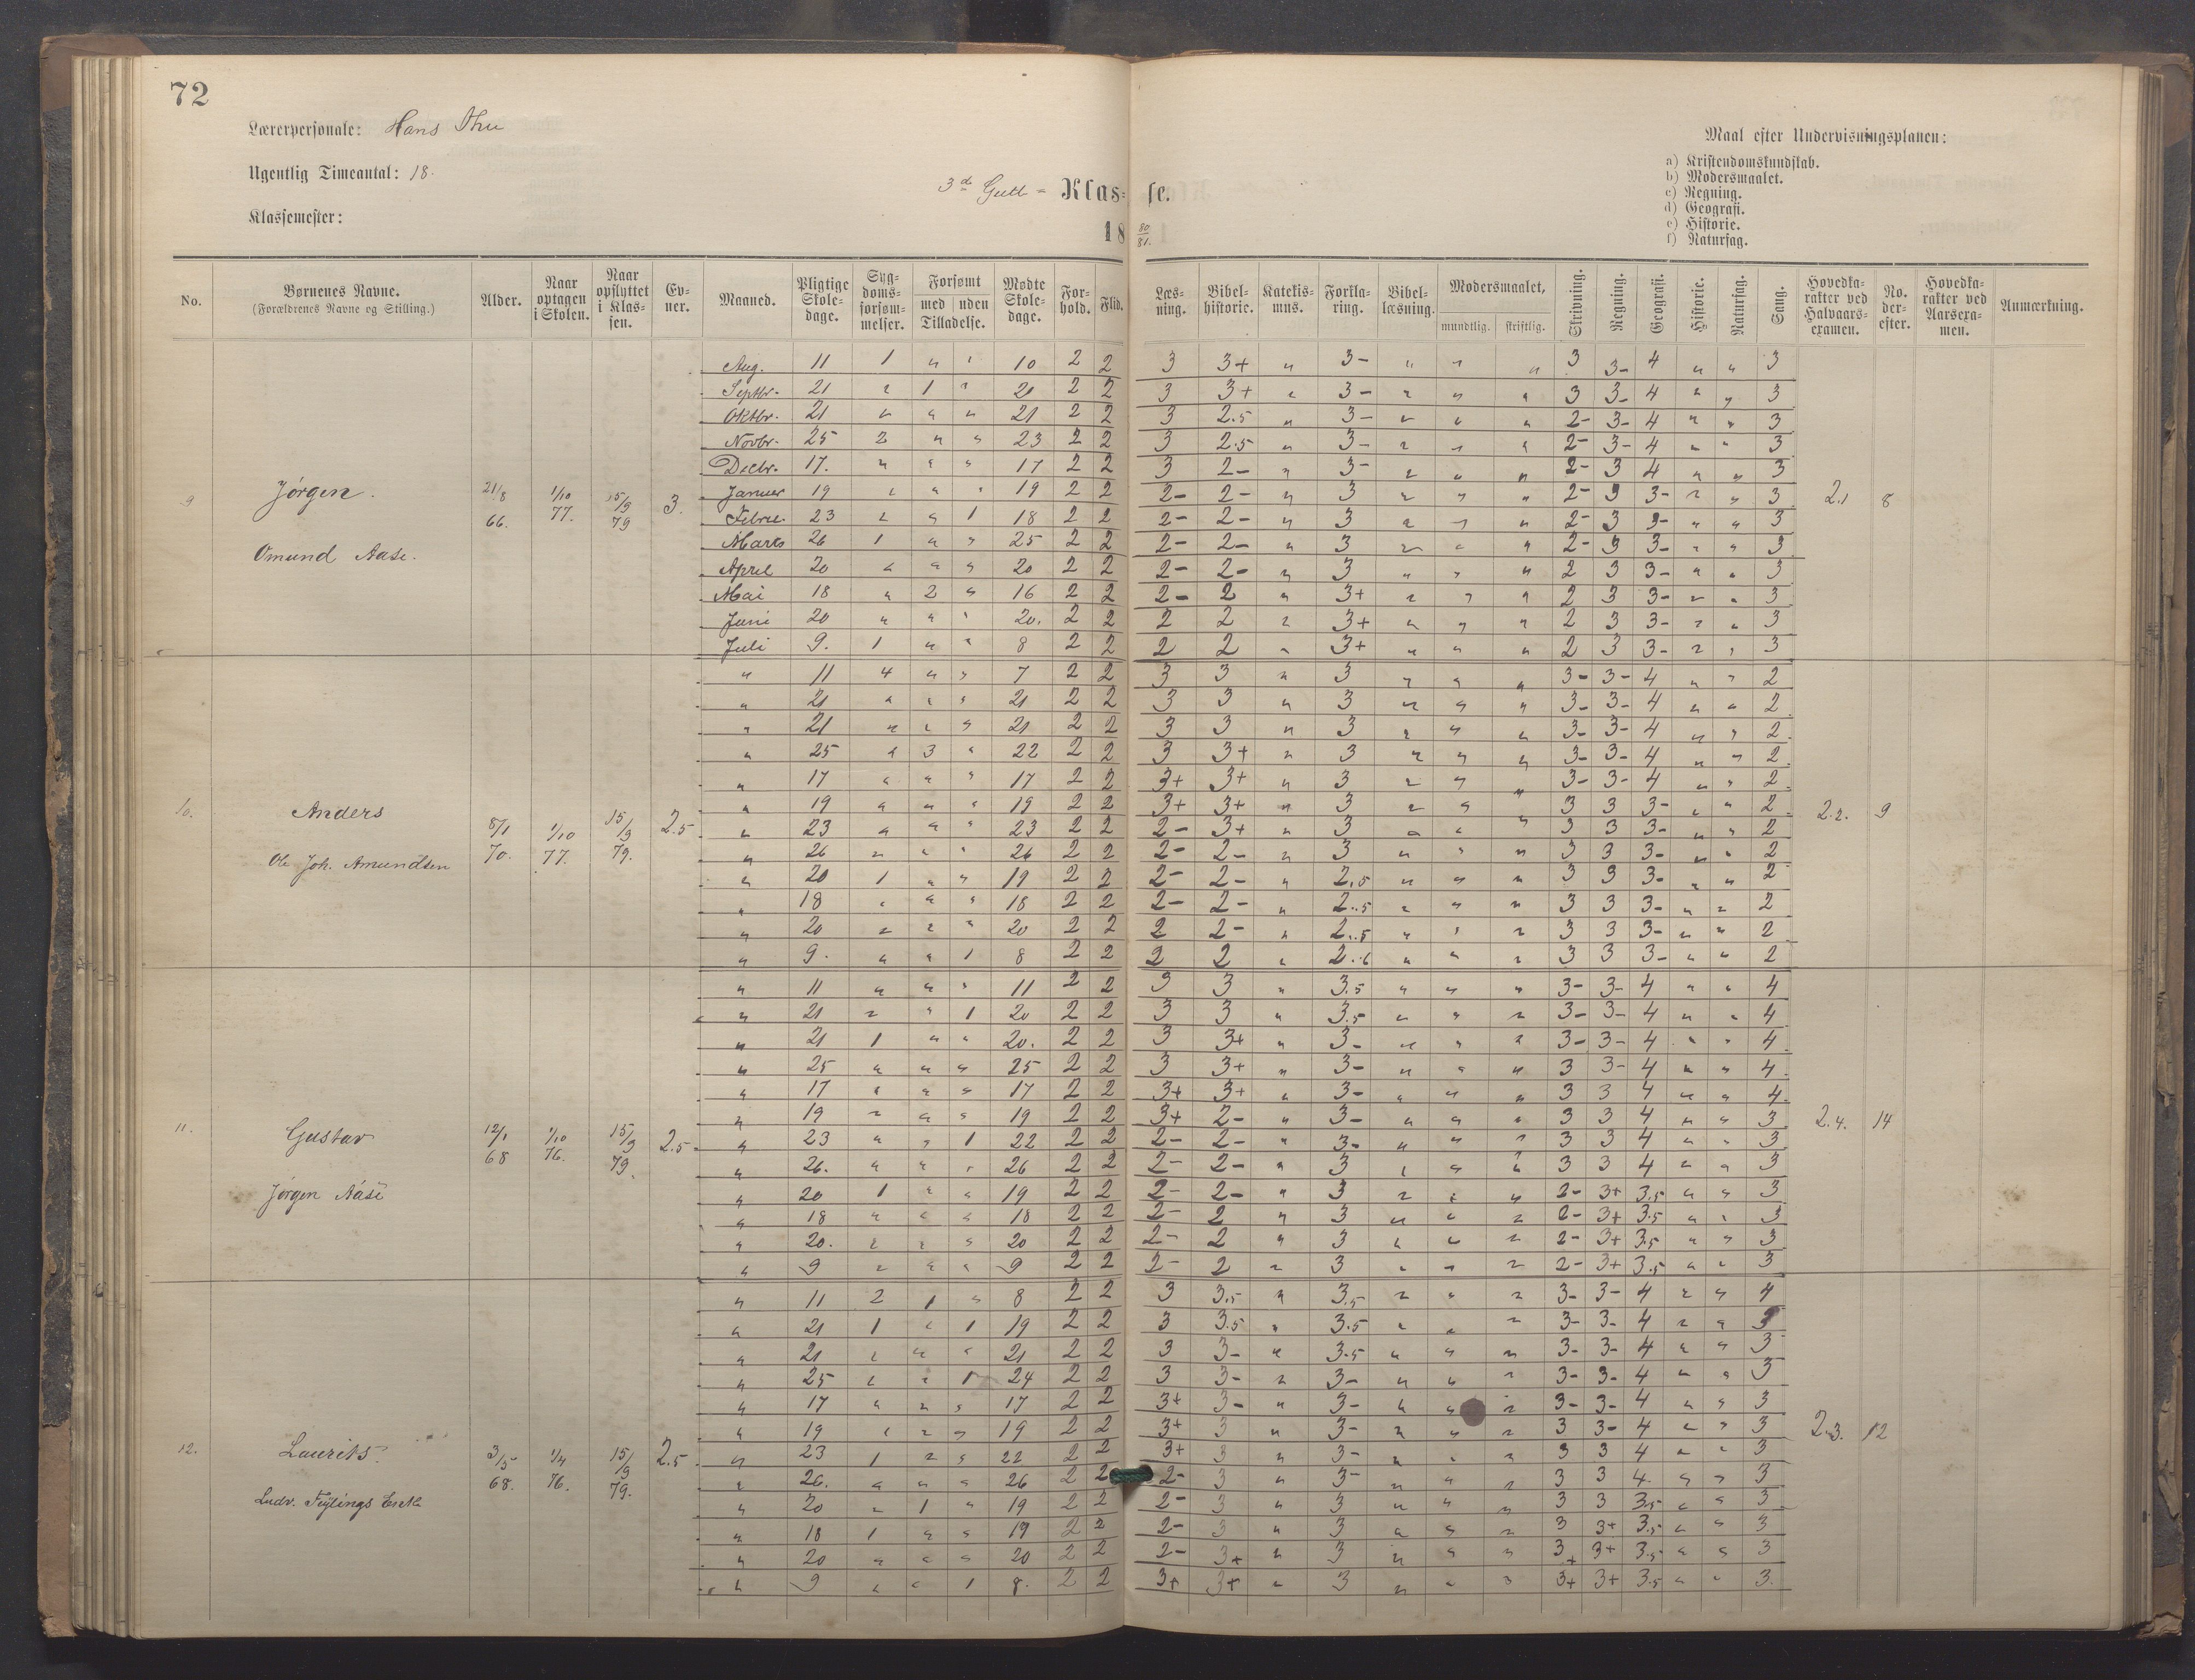 72
Lærerpersonale: Hans Thu
Ugentlig Timeantal: 18.
Klassemester:
3d Gutt- Klas- se.
18 80/81.
Maal efter Undervisningsplanen:
a) Kristendomskundskab.
b) Modersmaalet.
c) Regning.
d) Geografi.
e) Historie.
f) Naturfag.
No. Børnenes Navne. (Forældrenes Navne og Stilling.) Alder. Naar optagen i Skolen. Naar opflyttet i Klassen. Evner. Maaned. Pligtige Skoledage. Sygdomsforsømmelser. Forsømt med uden Tilladelse. Mødte Skoledage. Forhold. Flid. Læsning. Bibelhistorie. Katekismus. Forklaring. Bibellæsning. Modersmaalet, mundtlig. skriftlig. Skrivning. Regning. Geografi. Historie. Naturfag. Sang. Hovedkarakter ved Halvaarsexamen. No. derefter. Hovedkarakter ved Aarsexamen. Anmærkning.
9 Jørgen. Omund Aase. 21/8 66. 1/10 77. 15/9 79 3. 2.1 8
Aug. 11 1 " " 10 2 2 3 3+ " 3- " " " 3 3- 4 " " 3
Septbr. 21 " 1 " 20 2 2 3 3+ " 3- " " " 3 3- 4 " " 3
Oktbr. 21 " " " 21 2 2 3 2.5 " 3- " " " 2- 3- 4 " " 3
Novbr. 25 2 " " 23 2 2 3 2.5 " 3- " " " 2- 3- 4 " " 3
Decbr. 17. " " " 17 2 2 3 2- " 3- " " " 2- 3 4 " " 3
Januar 19 " " " 19 2 2 2- 2- " 3 " " " 2- 3 3- " " 3
Febru. 23 " " 1 18 2 2 2- 2- " 3 " " " 2- 3 3- " " 3
Marts 26 1 " " 25 2 2 2- 2- " 3 " " " 2- 3 3- " " 3
April 20 " " " 20 2 2 2- 2- " 3 " " " 2 3 3- " " 3
Mai 18 " 2 " 16 2 2 2- 2 " 3+ " " " 2 3 3- " " 3
Juni 20 " " " 20. 2 2 2 2 " 3+ " " " 2 3 3- " " 3
Juli 9. 1 " " 8 2 2 2 2 " 3+ " " " 2 3 3- " " 3
10. Anders Ole Joh. Amundsen 8/1 70. 1/10 77. 15/9 79. 2.5 2.2. 9
" 11 4 " " 7 2 2 3 3 " 3 " " " 3- 3- 4 " " 2
" 21 " " " 21 2 2 3 3 " 3 " " " 3- 3- 4 " " 2
" 21 " " " 21 2 2 3 3 " 3 " " " 3- 3- 4 " " 2
" 25 " 3 " 22 2 2 3 3+ " 3 " " " 3- 3- 4 " " 2
" 17 " " " 17 2 2 3+ 3+ " 3 " " " 3- 3- 4 " " 2
" 19 " " " 19 2 2 3+ 3+ " 3 " " " 3 3 3- " " 2
" 23 " " " 23 2 2 2- 3+ " 3 " " " 3 3 3- " " 2
" 26 " " " 26 2 2 2- 2- " 3 " " " 3 3 3- " " 2
" 20 1 " " 19 2 2 2- 2- " 2.5 " " " 3 3 3- " " 2
" 18 " " " 18 2 2 2- 2- " 2.5 " " " 3 3 3- " " 2
" 20 " " " 20 2 2 2 2- " 2.5 " " " 3 3 3- " " 2
" 9. " " 1 8 2 2 2 2 " 2.6 " " " 3 3 3- " " 2
11. Gustav Jørgen Aase 12/1 68 1/10 76. 15/9 79. 2.5 2.4. 14
" 11 " " " 11 2 2 3 3 " 3.5 " " " 3- 3- 4 " " 4
" 21 " " 1 20 2 2 3 3 " 3.5 " " " 3- 3- 4 " " 4
" 21 1 " " 20. 2 2 3 3+ " 3- " " " 3- 3- 4 " " 4
" 25 " " " 25 2 2 3 3+ " 3- " " " 3 3- 4 " " 4
" 17 " " " 17 2 2 3+ 3+ " 3- " " " 3 3 4 " " 4
" 19 " " " 19 2 2 3+ 2- " 3- " " " 3 3 4 " " 3
" 23 " " 1 22 2 2 2- 2- " 3- " " " 3 3 4 " " 3
" 26. " " " 26 2 2 2- 2- " 3 " " " 3 3 4 " " 3
" 20 1 " " 19 2 2 2- 2- " 3 " " " 2- 3+ 3.5 " " 3
" 18 " " " 18 2 2 2- 2 " 3 " " " 2- 3+ 3.5 " " 3
" 20. " " " 20 2 2 2- 2 " 3 " " " 2- 3+ 3.5 " " 3
" 9 " " " 9 2 2 2- 2 " 3 " " " 2- 3+ 3.5 " " 3
12. Laurits. Ludv. Feylings Enke 3/5 68. 1/4 76. 15/9 79. 2.5 2.3. 12
" 11 2 1 " 8 2 2 3 3.5 " 3.5 " " " 3- 3- 4 " " 4
" 21 1 " 1 19 2 2 3 3.5 " 3.5 " " " 3- 3- 4 " " 3
" 21 " " " 21 2 2 3 3- " 3.5 " " " 3- 3- 4 " " 3
" 25 " " 1 24 2 2 3 3- " 3- " " " 3- 3- 4 " " 3
" 17 " " " 17 2 2 3+ 3- " 3- " " " 3- 3- 4 " " 3
" 19 " " " 19 2 2 3+ 3 " 3- " " " 3 3- 4 " " 3
" 23 1 " " 22 2 2 3+ 3 " 3- " " " 3 3 4 " " 3
" 26. " " " 26 2 2 2- 3 " 3- " " " 3 3 4. " " 3
" 20 " 1 " 19 2 2 2- 3 " 3 " " " 3 3 3.5 " " 3
" 18 1 " " 17 2 2 2- 3 " 3 " " " 3 3+ 3.5 " " 3
" 20 " " " 20 2 2 2- 3+ " 3 " " " 3+ 3+ 3.5 " " 3
" 9 " " 1 8. 2 2 3+ 3+ " 3 " " " 3+ 3+ 3.5 " " 3.